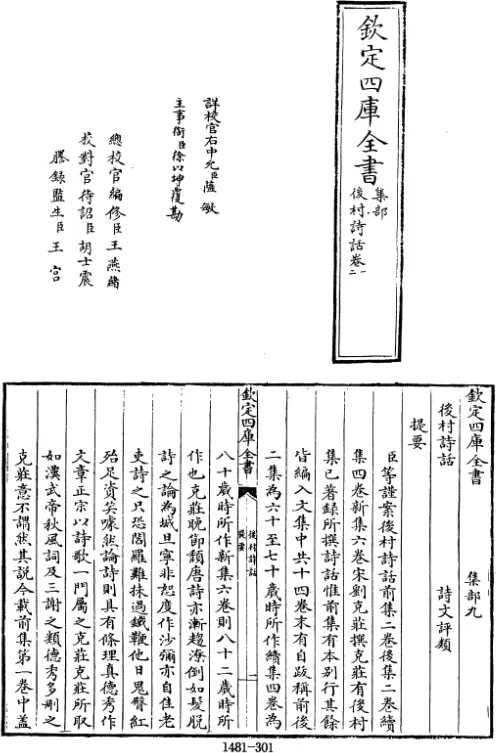 欽定四庫全書
集部
後村詩話卷一
二
詳校官右中允臣薩敏
主事銜臣徐以坤覆勘
總校官編修臣王燕緒
校對官待詔臣胡士震
謄錄監生臣王宮
欽定四庫全書
集部九
後村詩話
詩文評類
提要
臣等謹案後村詩話前集二卷後集二卷續
集四卷新集六卷宋劉克莊撰克莊有後村
集已著錄所撰詩話惟前集有本別行其餘
皆編入文集中共十四卷末有自跋稱前後
二集為六十至七十歲時所作續集四卷為
欽定四庫全書
後村詩話
提要
一
八十歲時所作新集六卷則八十二歲時所
作也克莊晚節頹唐詩亦漸趨潦倒如髮脫
詩之論為城旦寧非恕度作沙彌亦自佳老
吏詩之只恐閻羅難抹過鐵鞭他日鬼臂紅
殆足資笑噱然論詩則具有條理真德秀作
文章正宗以詩歌一門屬之克莊克莊所取
如漢武帝秋風詞及三謝之類德秀多刪之
克莊意不謂然其說今載前集第一卷中蓋
1481-301